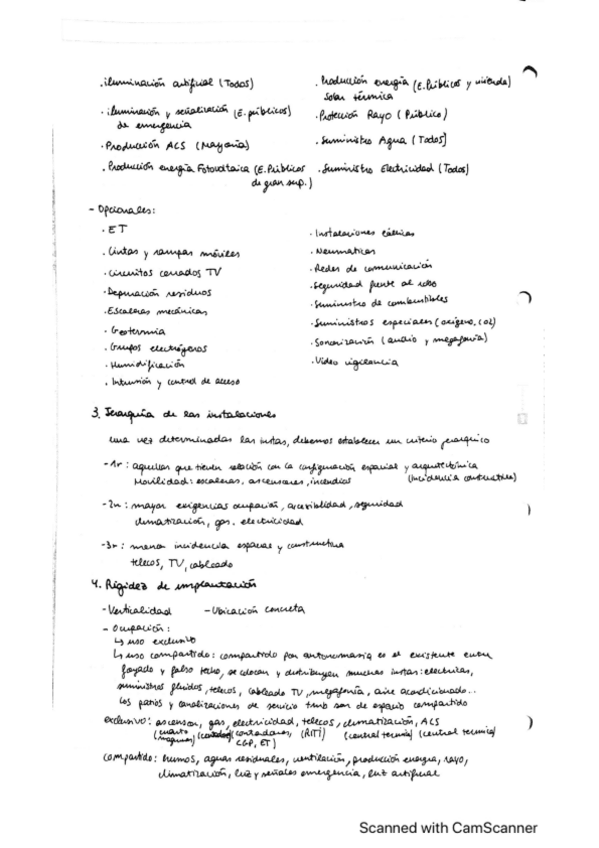 . iluminación artificial (Todos)
. iluminación y señalización (E. públicos)
de emergencia
. Producción ACS (Mayoría)
. Producción energía Fotovoltaica (E. Públicos
de gran sup.)
. Producción energía (E. Públicos y vivienda)
solar térmica
. Protección Rayo (Público)
. Suministro Agua (Todos)
. Suministro Electricidad (Todos)
- Opcionales:
. ET
. Cintas y rampas móviles
. Circuitos cerrados TV
. Depuración residuos
. Escaleras mecánicas
. Geotermia
. Grupos electrógenos
. Humidificación
. Intrusión y control de acceso
. Instalaciones eólicas
. Neumáticas
. Redes de comunicación
. Seguridad frente al robo
. Suministro de combustibles
. Suministros especiales (oxígeno, CO2)
. Sonorización (audio y megafonía)
. Video vigilancia
3. Jerarquía de las instalaciones
una vez determinadas las instas, debemos establecer un criterio jerárquico
- 1r: aquellas que tienen relación con la configuración espacial y arquitectónica
Movilidad: escaleras, ascensores, incendios (Incidencia constructiva)
- 2n: mayor exigencias ocupación, accesibilidad, seguridad
climatización, gas, electricidad
- 3r: menor incidencia espacial y constructiva
telecos, TV, cableado
4. Rigidez de implantación
- Verticalidad - Ubicación concreta
- Ocupación:
↳ uso exclusivo
↳ uso compartido: compartido por antonomasia es el existente entre
forjado y falso techo, se colocan y distribuyen muchas instas: electricas,
suministros fluidos, telecos, cableado TV, megafonía, aire acondicionado...
los patios y canalizaciones de servicio tmb son de espacio compartido
exclusivo: ascensor, gas, electricidad, telecos, climatización, ACS
(cuarto maquinas) (contadores, CGP, ET) (RITI) (central termica) (central termica)
compartido: humos, aguas residuales, ventilación, producción energía, rayo,
climatización, luz y señales emergencia, luz artificial
Scanned with CamScanner